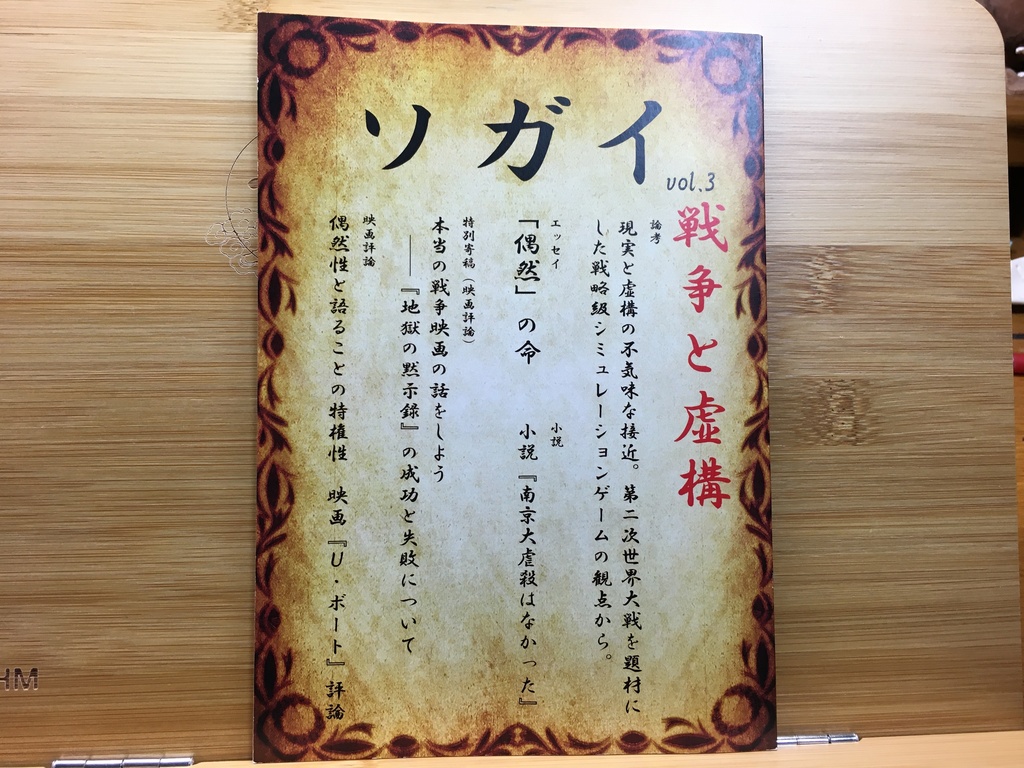 ソガイ
vol.3
戦争と虚構
論考
現実と虚構の不気味な接近。第二次世界大戦を題材に
した戦略級シミュレーションゲームの観点から。
エッセイ
「偶然」の命
小説
小説『南京大虐殺はなかった』
特別寄稿(映画評論)
本当の戦争映画の話をしよう
――『地獄の黙示録』の成功と失敗について
映画評論
偶然性と語ることの特権性 映画『U・ボート』評論
HM